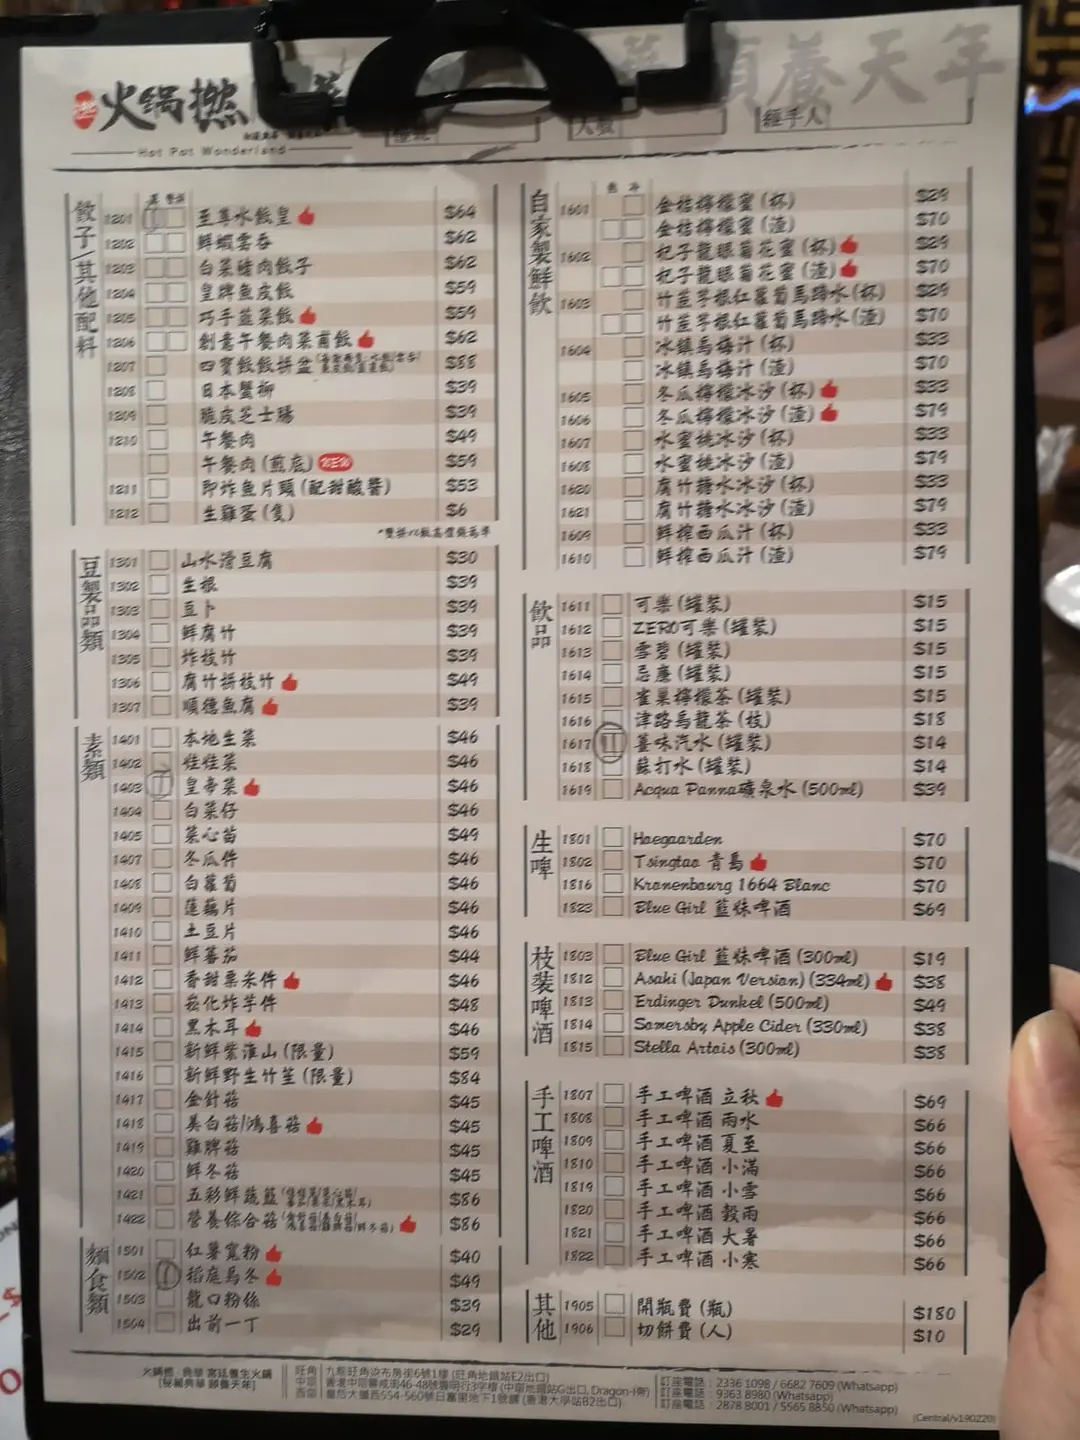 火鍋撚
頤養天年
Hot Pot Wonderland
人數
經手人
餃子/其他配料
1201 至尊水餃皇 $64
1202 鮮蝦雲吞 $62
1203 白菜豬肉餃子 $62
1204 皇牌魚皮餃 $59
1205 巧手韮菜餃 $59
1206 創意午餐肉菜甫餃 $62
1207 四寶餃餃拼盆 $88
1208 日本蟹柳 $39
1209 脆皮芝士腸 $39
1210 午餐肉 $49
午餐肉 (煎底) NEW $59
1211 即炸魚片頭 (配甜酸醬) $53
1212 生雞蛋 (隻) $6
豆製品類
1301 山水滑豆腐 $30
1302 生根 $39
1303 豆卜 $39
1304 鮮腐竹 $39
1305 炸枝竹 $39
1306 腐竹拼枝竹 $49
1307 順德魚腐 $39
素類
1401 本地生菜 $46
1402 娃娃菜 $46
1403 皇帝菜 $46
1404 白菜仔 $46
1405 菜心苗 $49
1407 冬瓜件 $46
1408 白蘿蔔 $46
1409 蓮藕片 $46
1410 土豆片 $46
1411 鮮蕃茄 $44
1412 香甜粟米件 $46
1413 崧化炸芋件 $48
1414 黑木耳 $46
1415 新鮮紫淮山 (限量) $59
1416 新鮮野生竹笙 (限量) $84
1417 金針菇 $45
1418 美白菇/鴻喜菇 $45
1419 雞脾菇 $45
1420 鮮冬菇 $45
1421 五彩鮮蔬籃 $86
1422 營養綜合菇 $86
麵食類
1501 紅薯寬粉 $40
1502 稻庭烏冬 $49
1503 龍口粉絲 $39
1504 出前一丁 $29
自家製鮮飲
熱 冷
1601 金桔檸檬蜜 (杯) $29
金桔檸檬蜜 (渣) $70
1602 杞子龍眼菊花蜜 (杯) $29
杞子龍眼菊花蜜 (渣) $70
1603 竹蔗茅根紅蘿蔔馬蹄水 (杯) $29
竹蔗茅根紅蘿蔔馬蹄水 (渣) $70
1604 冰鎮烏梅汁 (杯) $33
冰鎮烏梅汁 (渣) $70
1605 冬瓜檸檬冰沙 (杯) $33
1606 冬瓜檸檬冰沙 (渣) $79
1607 水蜜桃冰沙 (杯) $33
1608 水蜜桃冰沙 (渣) $79
1620 腐竹糖水冰沙 (杯) $33
1621 腐竹糖水冰沙 (渣) $79
1609 鮮榨西瓜汁 (杯) $33
1610 鮮榨西瓜汁 (渣) $79
飲品
1611 可樂 (罐裝) $15
1612 ZERO可樂 (罐裝) $15
1613 雪碧 (罐裝) $15
1614 忌廉 (罐裝) $15
1615 雀巢檸檬茶 (罐裝) $15
1616 津路烏龍茶 (枝) $18
1617 薑味汽水 (罐裝) $14
1618 蘇打水 (罐裝) $14
1619 Acqua Panna礦泉水 (500ml) $39
生啤
1801 Hoegaarden $70
1802 Tsingtao 青島 $70
1816 Kronenbourg 1664 Blanc $70
1823 Blue Girl 藍妹啤酒 $69
枝裝啤酒
1803 Blue Girl 藍妹啤酒 (300ml) $19
1812 Asahi (Japan Version) (334ml) $38
1813 Erdinger Dunkel (500ml) $49
1814 Somersby Apple Cider (330ml) $38
1815 Stella Artois (300ml) $38
手工啤酒
1807 手工啤酒 立秋 $69
1808 手工啤酒 雨水 $66
1809 手工啤酒 夏至 $66
1810 手工啤酒 小滿 $66
1819 手工啤酒 小雪 $66
1820 手工啤酒 穀雨 $66
1821 手工啤酒 大暑 $66
1822 手工啤酒 小寒 $66
其他
1905 開瓶費 (瓶) $180
1906 切餅費 (人) $10
火鍋撚．典華 宮廷養生火鍋
[秘籍典華 頤養天年]
旺角 九龍旺角染布房街6號1樓 (旺角地鐵站E2出口) 訂座電話：2336 1098 / 6682 7609 (Whatsapp)
中環 香港中環威靈頓街46-48號 3字樓 (中環地鐵站G出口, Dragon-i旁) 訂座電話：9363 8980 (Whatsapp)
西環 皇后大道西554-560號日富里地下1號舖 (香港大學站B2出口) 訂座電話：2878 8001 / 5565 8850 (Whatsapp)
(Central/v190220)